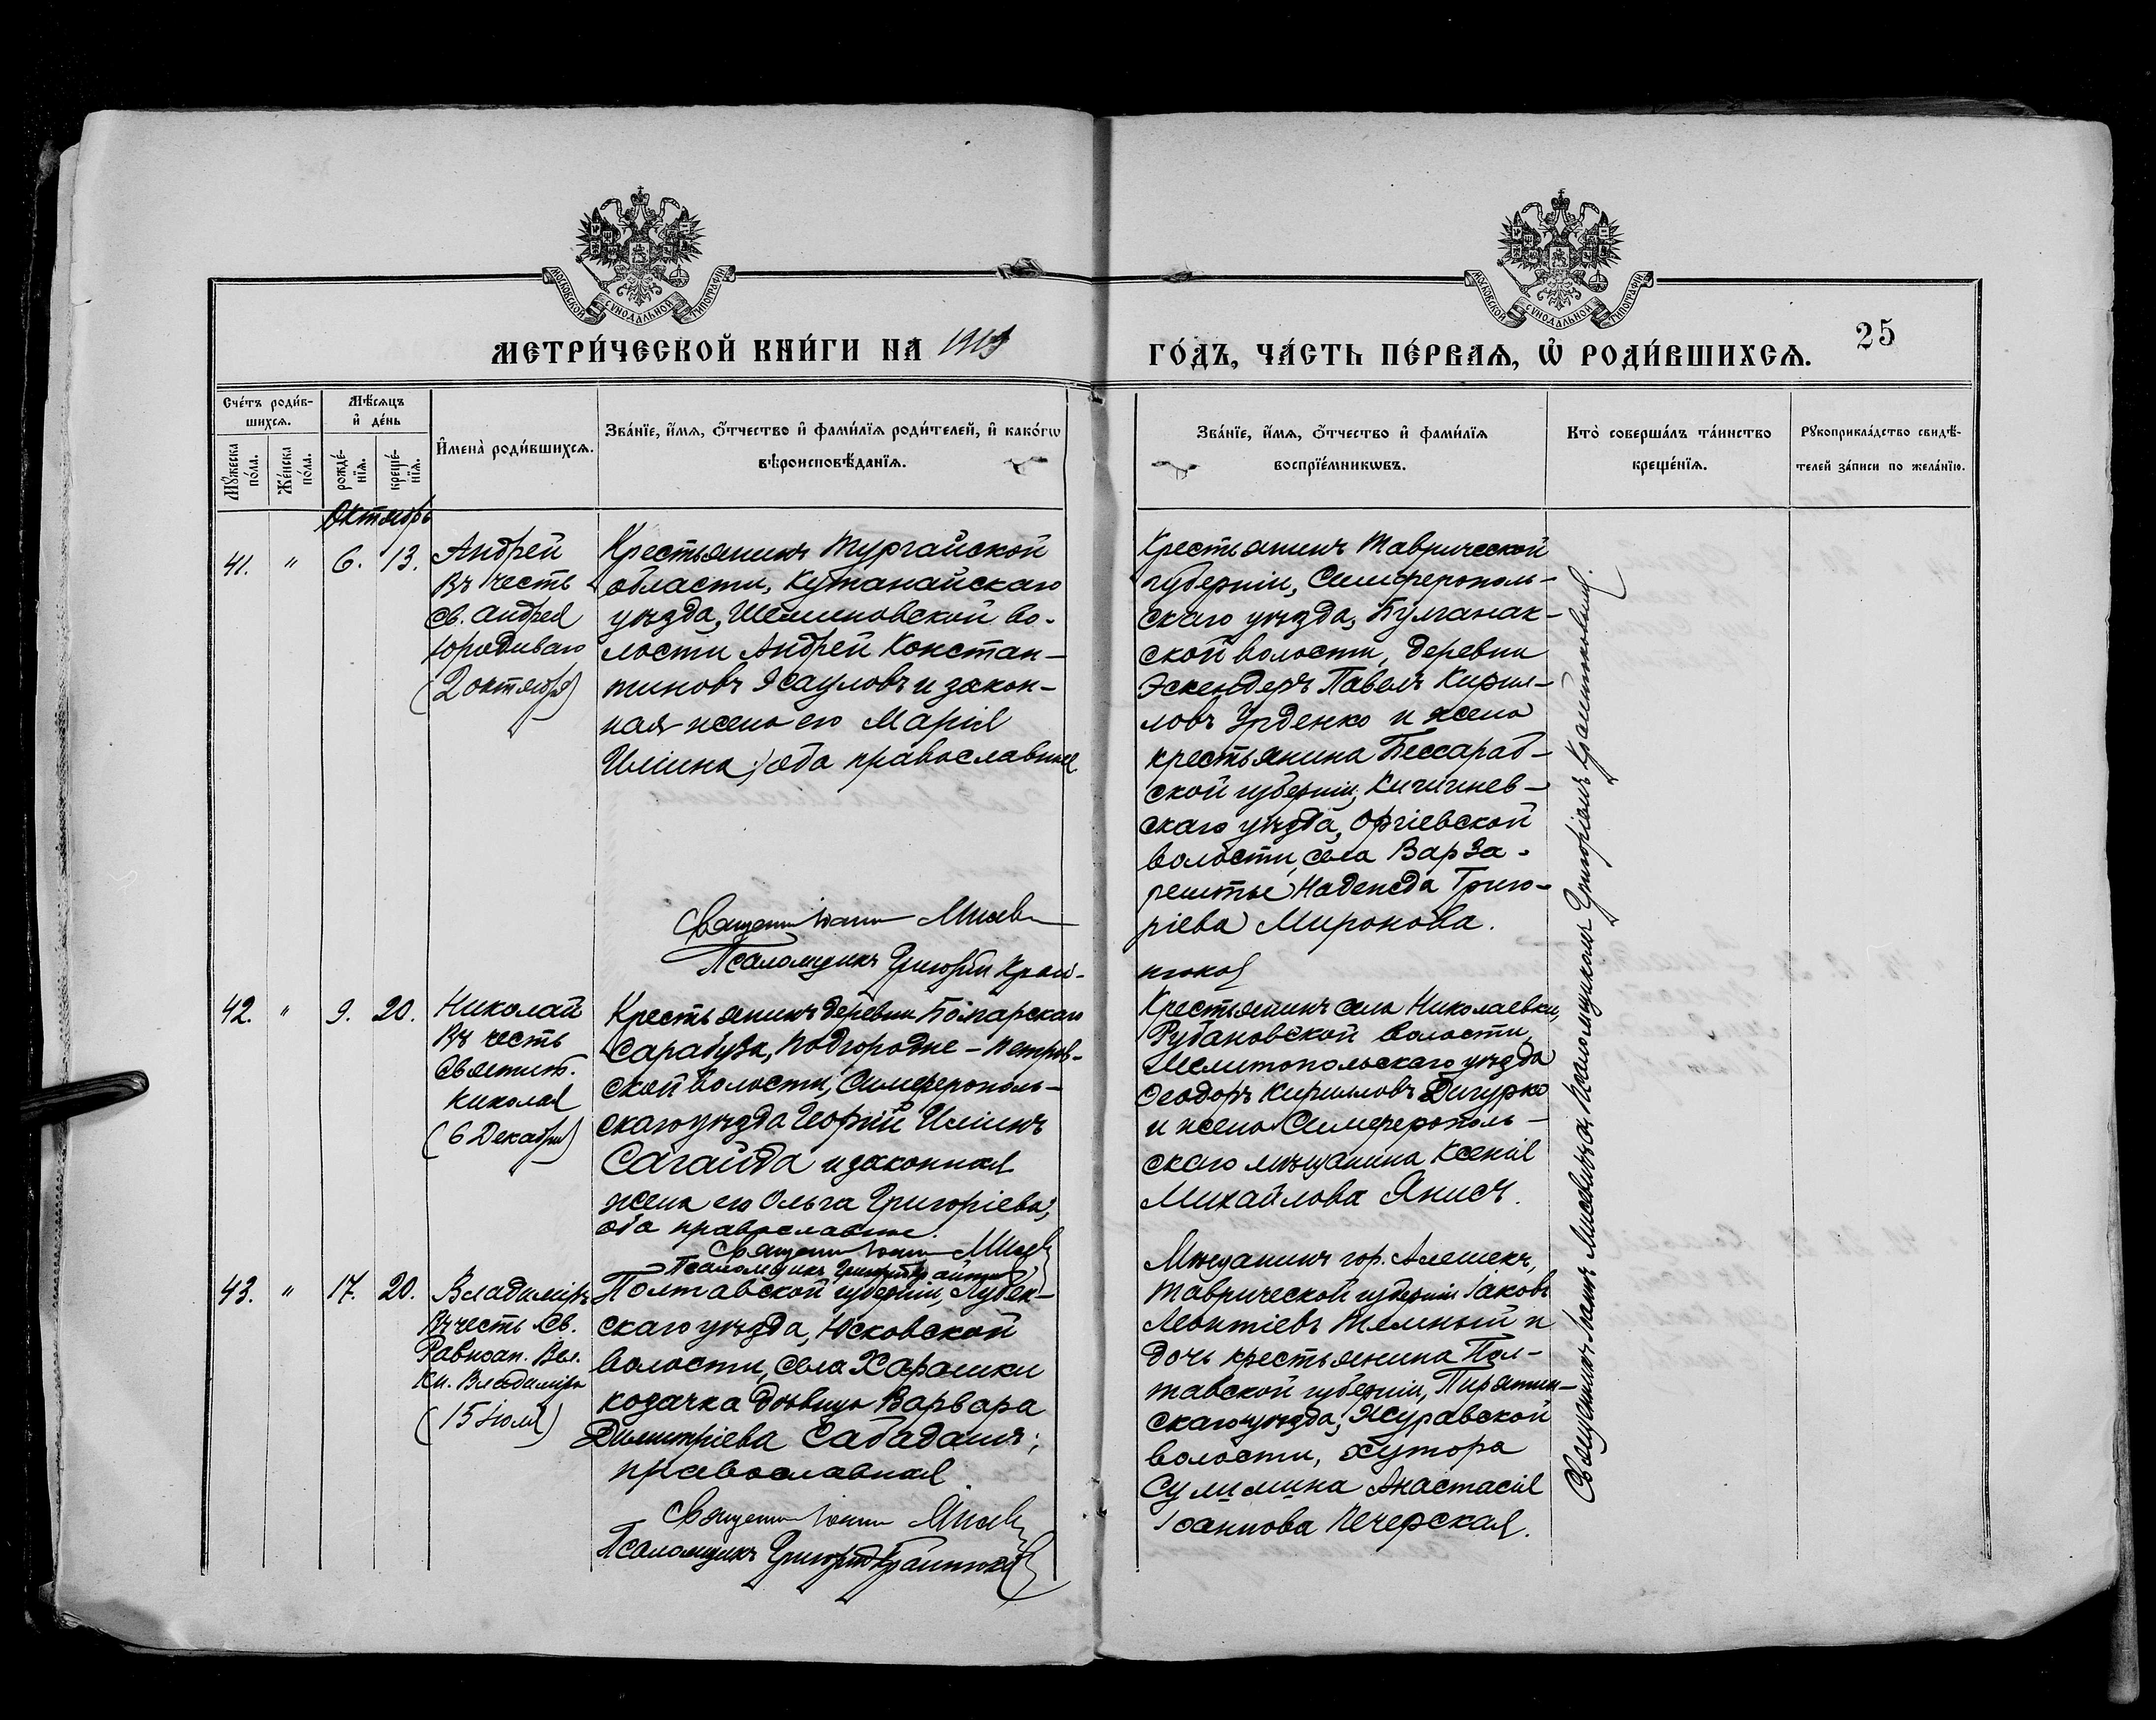 МОСКОВСКОЙ СУНОДАЛЬНОЙ ТИПОГРАФІИ
МОСКОВСКОЙ СУНОДАЛЬНОЙ ТИПОГРАФІИ
МЕТРИ́ЧЕСКОЙ КНИ́ГИ НА
ГО́ДЪ, ЧА́СТЬ ПЕ́РВАѦ, Ѡ РОДИ́ВШИХСѦ.
25
Сче́тъ роди́в-
шихсѧ.
Мꙋ́жеска по́ла.
Же́нска по́ла.
Мѣ́сѧцъ
и҆ де́нь
рожде́-
нїѧ.
креще́-
нїѧ.
И҆мена̀ роди́вшихсѧ.
Зва́нїе, и҆́мѧ, ѻ҆́тчество и҆ фами́лїѧ роди́телей, и҆ како́гѡ
вѣроисповѣ́данїѧ.
Зва́нїе, и҆́мѧ, ѻ҆́тчество и҆ фами́лїѧ
воспрїе́мникѡвъ.
Кто̀ соверша́лъ та́инство
креще́нїѧ.
Рꙋкоприкла́дство свидѣ́-
телей за́писи по жела́нїю.
Октябрь
41. " 6. 13.
Андрей
Въ честь
Св. Андрея
Юродиваго
(2 октября)
Крестьянинъ Тургайской
области, Кутанайскаго
уѣзда, во-
лости Андрей Констан-
тиновъ Ясауловъ и закон-
ная жена его Марія
Ильина; оба православные
Священникъ Іоаннъ
Псаломщикъ Григорій Край-
нюковъ
Крестьянинъ Таврической
губерніи, Симферополь-
скаго уѣзда, Булганак-
ской волости, деревни
Эскендеръ Павелъ Кирил-
ловъ и жена
крестьянина Бессараб-
ской губерніи, Кишинев-
скаго уѣзда, Оргіевской
волости, села Варза-
решты Надежда Григо-
ріева Миронова.
42. " 9. 20.
Николай
Въ честь
Святит.
Николая
(6 Декабря)
Крестьянинъ деревни Болгарскаго
Сарабуза, Подгородне-Петров-
ской волости, Симферополь-
скаго уѣзда Георгій Ильинъ
Сагайда и законная
жена его Ольга Григоріева;
оба православные.
Священникъ Іоаннъ
Псаломщикъ Григорій Крайнюковъ
Крестьянинъ села Николаевки,
Рубановской волости,
Мелитопольскаго уѣзда
Ѳеодоръ Кирилловъ Дигурко
и жена Симферополь-
скаго мѣщанина Ксенія
Михайлова Янисъ.
43. " 17. 20.
Владиміръ
Въ честь Св.
Равноап. Вел.
Кн. Владиміра
(15 Іюля)
Полтавской губерніи, Лубен-
скаго уѣзда, Юсковской
волости, села Харсики
козачка дѣвица Варвара
Димитріева Сабадашъ;
православная
Священникъ Іоаннъ
Псаломщикъ Григорій Крайнюковъ
Мѣщанинъ гор. Алешекъ,
Таврической губерніи Іаковъ
Леонтіевъ Темный и
дочь крестьянина Пол-
тавской губерніи, Пирятин-
скаго уѣзда, Журавской
волости, хутора
Сулимина Анастасія
Іоаннова Печерская.
Священникъ Іоаннъ съ псаломщикомъ Григоріемъ Крайнюковымъ.